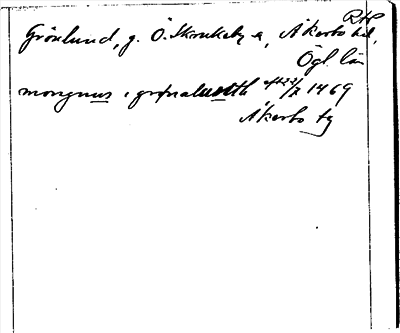 RAP
Grönlund, g. Ö. Skrukeby sn, Åkerbo hd,
Ögl. län
mongnus i grønalundh efter 22/7 1469
Åkerbo tg